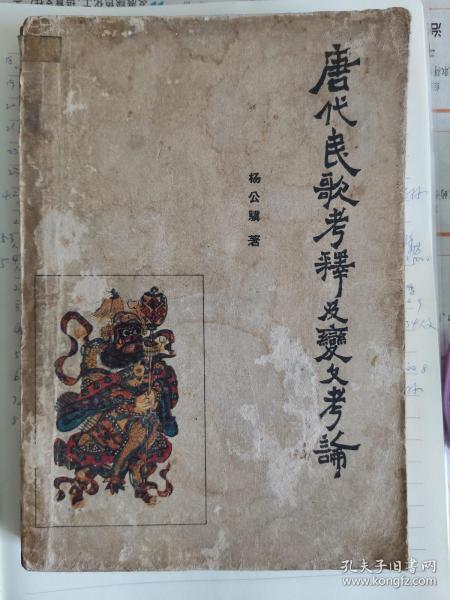 唐代民歌考釋及變文考論
杨公骥 著
孔夫子旧书网
www.kongfz.com